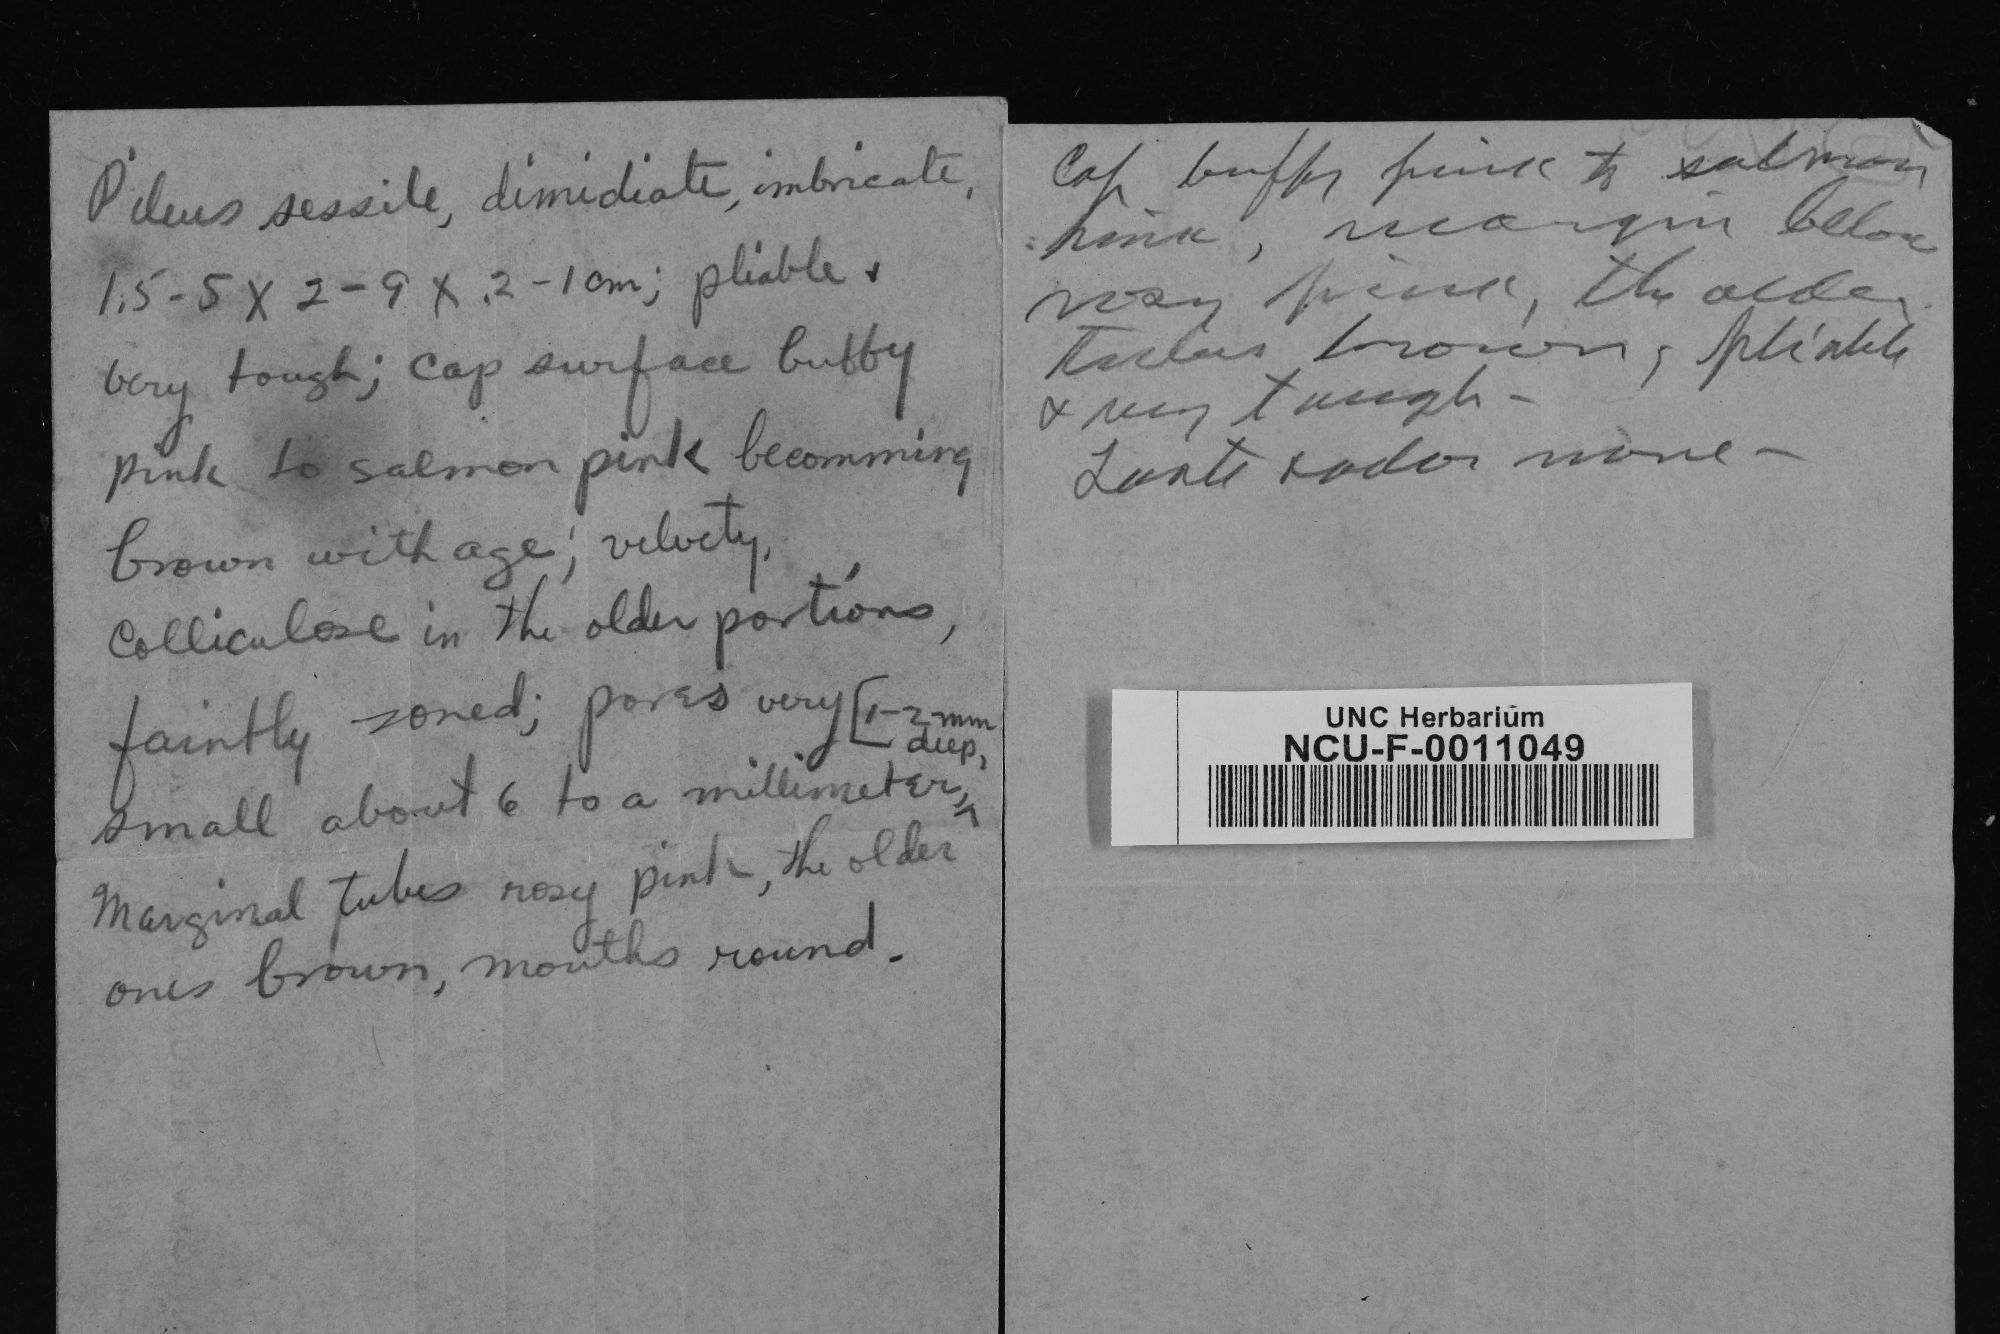 Pileus sessile, dimidiate, imbricate,
1.5-5 X 2-9 X .2-1 cm; pliable &
very tough; cap surface buffy
pink to salmon pink becomming
brown with age; velvety,
colliculose in the older portions,
faintly zoned; pores very [1-2 mm
deep,
small about 6 to a millimeter, ^
Marginal tubes rosy pink, the older
ones brown, mouths round.
Cap buffy pink to salmon
pink, margin below
rosy pink, the older
tubes brown; pliable
& very tough -
Taste & odor none -
UNC Herbarium
NCU-F-0011049